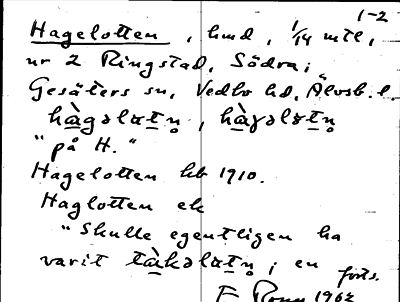 1-2
Hagelotten, hmd, 1/14 mtl,
nr 2 Ringstad, Södra;
Gesäters sn, Vedbo hd, Älvsb. l.
hàgəlɷtn̥, hàgəlɷtn̥
"på H."
Hagelotten kb 1910.
Haglotten ek
"Skulle egentligen ha
varit tàkəlɷtn̥; en forts.
F Rosn 1962